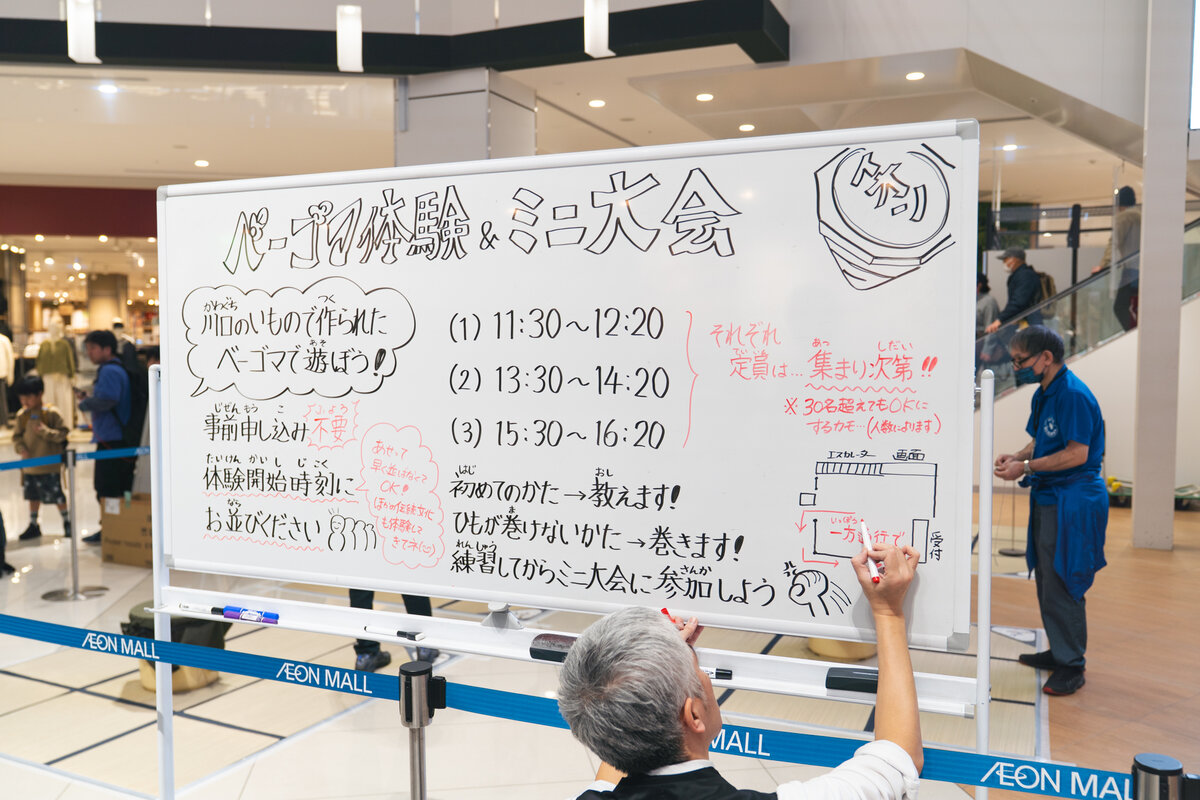 ベーゴマ体験&ミニ大会
かわぐち
つく
川口のいもので作られた
あそ
ベーゴマで遊ぼう!
じぜんもうしこ
ふよう
事前申し込み不要
たいけんかいしじこく
体験開始時刻に
なら
お並びください
あせって
早く並ばなくて
OK!
ほかの伝統文化
も体験して
きてネ
(1) 11:30～12:20
(2) 13:30～14:20
(3) 15:30～16:20
それぞれ
ていいん
定員は…集まり次第!!
あつ
しだい
※30名超えてもOKに
するカモ…(人数によります)
はじ
おし
初めてのかた→教えます!
ま
ひもが巻けないかた→巻きます!
れんしゅう
さんか
練習してからミニ大会に参加しよう
エスカレーター
画面
いっぽう
一方
行で
受付
ÆON MALL
ÆON MALL
MALL
ÆON MALL